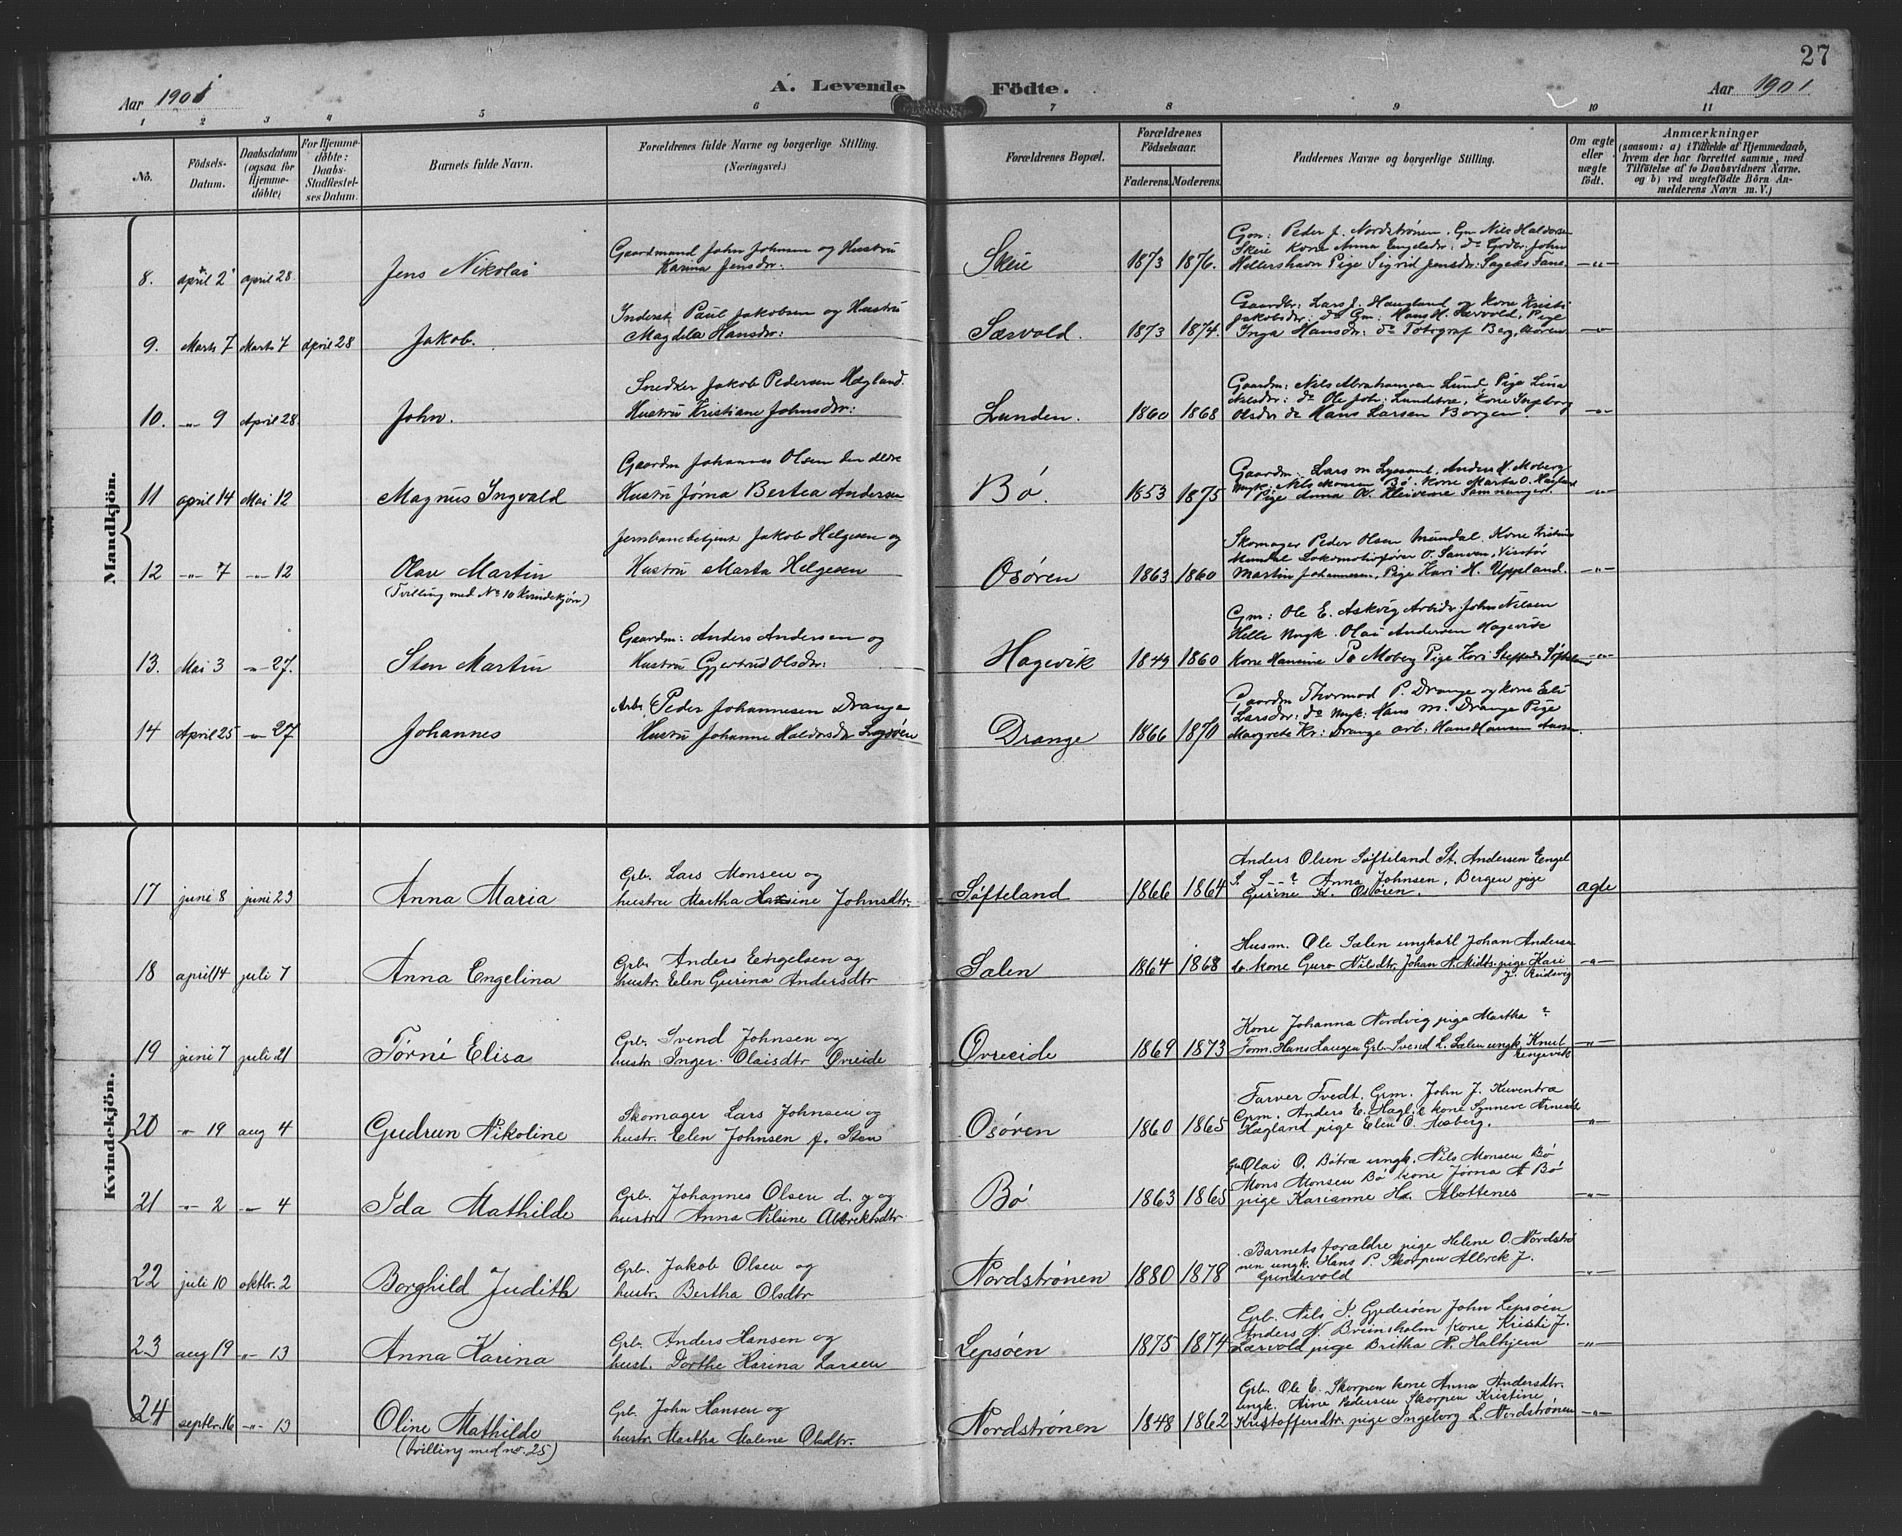 27
Aar 1901
A. Levende Födte.
Aar 1901
1 2 3 4 5 6 7 8 9 10 11
No.
Födsels-Datum.
Daabsdatum (ogsaa for Hjemmedöbte)
For Hjemmedöbte: Daabs-Stadfæstelses Datum.
Barnets fulde Navn.
Forældrenes fulde Navne og borgerlige Stilling. (Næringsvei.)
Forældrenes Bopæl.
Forældrenes Födselsaar.
Faderens. Moderens.
Faddernes Navne og borgerlige Stilling.
Om ægte eller uægte født.
Anmærkninger
(saasom: a) i Tilfælde af Hjemmedaab,
hvem der har forrettet samme, med
Tilföielse af to Daabsvidners Navne.
og b) ved uægtefödte Börn Anmelderens Navn m. V.)
Mandkjön.
8. april 2 april 28 Jens Nikolai
Gaardmand John Johnsen og Hustru
Karina Jensdr:
Skeie 1873 1876.
Gm: Peder J. Nordstrønen, Gm Nils Haldorsen
Skeie Kone Anna Engelsdr: do Gjordr. John
Hillershavn Pige Sigrid Jensdr: —"—
9. Marts 7 Marts 7 april 28 Jakob.
Inderst: Paul Jakobsen og Hustru
Magdela Hansdr:
Særvold. 1873 1874.
Gaardbr: Lars J. Haugland og Kone Kristi
Jakobsdr: do Gm: Hans H. Særvold, Pige
Inga Hansdr: do Fotograf Berg, Osøren —"—
10. —"— 9 April 28. John.
Snedker Jakob Pedersen Hægland.
Hustru Kristiane Johnsdr:
Lunden. 1860 1868
Gaardm: Nils Abrahamsen Lund, Pige Lina
Nilsdr: do Ole Joh: Lundetræ, Kone Ingeborg
Olsdr do Hans Larsen Borgen. —"—
11 april 14 Mai 12 Magnus Ingvald
Gaardm Johannes Olsen den ældre
Hustru Jørna Bertea Andersen
Bø. 1853 1875
Gaardm: Lars M Lyssand, Anders H. Moberg
Ungk: Nils Monsen Bø. Kone Marta O. Hægland
Pige Anna O. Kleivene Samnanger. —"—
12 —"— 7 —"— 12 Olav Martin
(Tvilling med No 10 Kvindekjøn)
Jernbanebetjent Jakob Helgesen og
Hustru Marta Helgesen
Osøren 1863 1860
Skomager Peder Olsen Mundal Kone Kristine
Mundal Lokomotivfører O. Sanven,
Martin Johannesen, Pige Kari H. Uppland. —"—
13. Mai 3 —"— 27. Sten Martin
Gaardm: Anders Andersen og
Hustru Gjertrud Olsdr:
Hagevik 1849 1860
Gm: Ole E. Askvig Arbdr. John Nilsen
Helle Ungk. Olai Andersen Hagevik
Kone Hansine Po Moberg Pige Kari Steffensdr Søfteland —"—
14 April 25 —"— 27 Johannes
Arb. Peder Johannesen Drange
Hustru Johanne Haldorsdr
Drange 1866 1870
Gaardm Thormod P. Drange og Kone Eli
Larsdr: do Ungk: Hans M. Drange Pige
Margrete Kr: Drange arb: Hans Hansen
Kvindekjön.
17 juni 8 juni 23 Anna Maria
Grb. Lars Monsen og
hustru Martha Hansine Johnsdtr.
Søfteland 1866 1864
Anders Olsen Søfteland St. Andersen Engel
S. S---? Anna Johnsen, Bergen pige
Gurine K. Osøren. ægte
18 april 14 juli 7 Anna Engelina
Grb. Anders Engelsen og
hustr. Elen Gurina Andersdtr
Sælen 1864 1868
Husm. Ole Sælen ungkarl Johan Andersen
do. kone Guro Nilsdtr Johan N. Midts. pige Kari
J. Reidvig —"—
19 juni 7 juli 21 Tørne Elisa
Grb. Svend Johnsen og
hustr. Inger Olaisdtr Øvreeide
Øvreeide 1869 1873
Kone Johanna Nordvig pige Martha ?
Form. Hans Haugen Grb. Svend L. Sælen ungk. Knut
—"—
20 —"— 19 aug 4 Gudrun Nikoline
Skomager Lars Johnsen og
hustr. Elen Johnsen f. Sten
Osøren 1860 1865
Farver Tvedt, Grm. John J. Kuventræ
Grm. Anders E. Hagl. & kone Synneve
Hægland pige Elen O. Moberg. —"—
21 —"— 2 —"— 4 Ida Mathilde
Grb. Johannes Olsen d. y og
hustru Anna Nilsine Albrektsdtr
Bø 1863 1865
Gm Olai O. Bøtræ ungk. Nils Monsen Bø
Mons Monsen Bø kone Jørna A Bø
pige Karianne H. —"—
22 juli 10 oktbr. 2 Borghild Judith
Grb. Jakob Olsen og
hustr. Bertha Olsdtr
Nordstrønen 1880 1878
Barnets forældre pige Helene O. Nordstrø
nen ungk. Hans P. Skorpen Albrek J.
Grindevold —"—
23 aug 19 —"— 13 Anna Karina
Grb. Anders Hansen og
hust. Dorthe Karina Larsen
Lepsøen 1875 1874
Grb. Nils J. Gjedesøen John Lepsøen
Anders N. Bruinsholm kone Kristi J.
Særvold pige Britha N. Halhjem —"—
24 septbr. 16 —"— 13 Oline Mathilde
(tvilling med no. 25)
Grb. John Hansen og
hustr. Martha Malene Olsdtr.
Nordstrønen 1848 1862
Grb. Ole E. Skorpen kone Anna Andersdtr.
ungk. Arne Pedersen Skorpen Kristine
Kristoffersdtr. pige Ingeborg L. Nordstrønen —"—